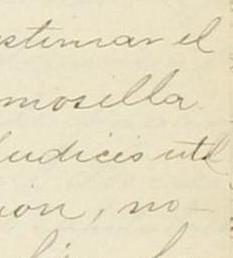 estimar el
mosilla
ludicis utd
ion, no-